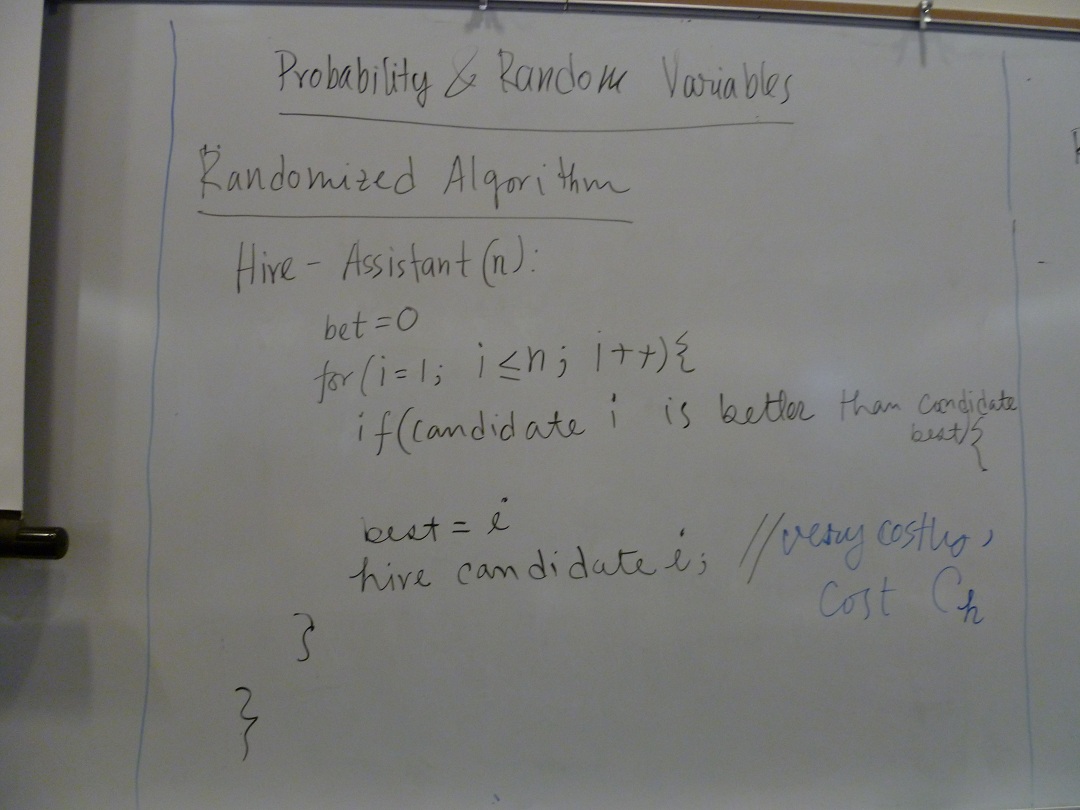 Probability & Random Variables
Randomized Algorithm
Hire - Assistant (n):
bet = 0
for (i = 1; i ≤ n; i++) {
if (candidate i is better than candidate
best) {
best = i
hire candidate i; // very costly,
cost Ch
}
}